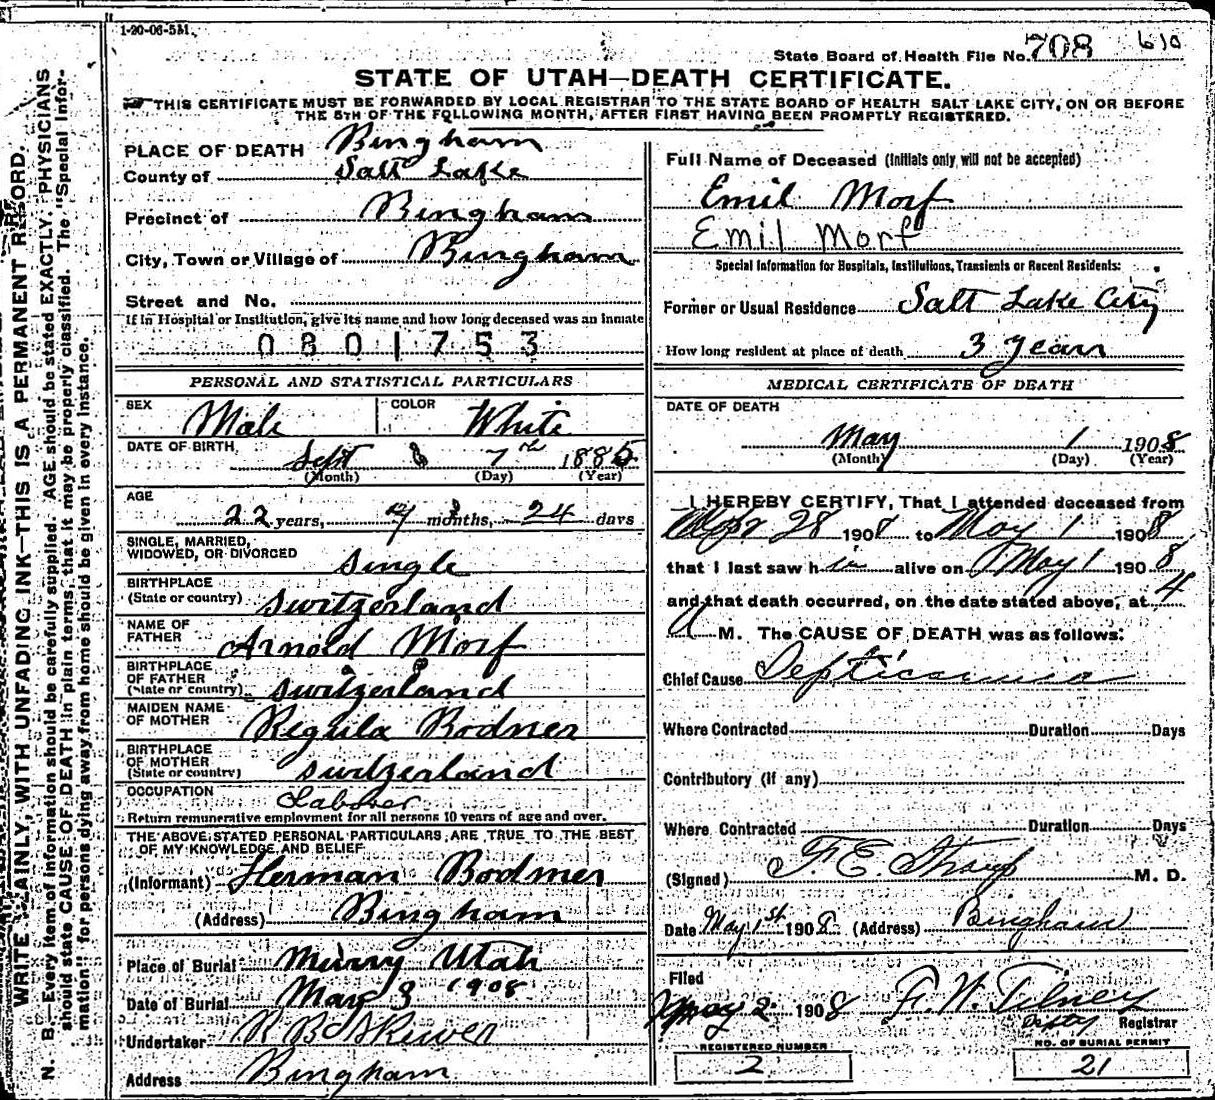 1-20-06-5M.
State Board of Health File No. 708 610
STATE OF UTAH—DEATH CERTIFICATE.
THIS CERTIFICATE MUST BE FORWARDED BY LOCAL REGISTRAR TO THE STATE BOARD OF HEALTH SALT LAKE CITY, ON OR BEFORE
THE 5TH OF THE FOLLOWING MONTH, AFTER FIRST HAVING BEEN PROMPTLY REGISTERED.
WRITE PLAINLY, WITH UNFADING INK—THIS IS A PERMANENT RECORD.
N. B.—Every item of information should be carefully supplied. AGE should be stated EXACTLY. PHYSICIANS
should state CAUSE OF DEATH in plain terms, that it may be properly classified. The "Special Infor-
mation" for persons dying away from home should be given in every instance.
PLACE OF DEATH Bingham
County of Salt Lake
Precinct of Bingham
City, Town or Village of Bingham
Street and No.
If in Hospital or Institution, give its name and how long deceased was an inmate
0801753
PERSONAL AND STATISTICAL PARTICULARS
SEX Male COLOR White
DATE OF BIRTH Sept 7th 1885
(Month) (Day) (Year)
AGE
22 years, 7 months, 24 days
SINGLE, MARRIED,
WIDOWED, OR DIVORCED Single
BIRTHPLACE
(State or country) Switzerland
NAME OF
FATHER Arnold Morf
BIRTHPLACE
OF FATHER
(State or country) Switzerland
MAIDEN NAME
OF MOTHER Regula Bodmer
BIRTHPLACE
OF MOTHER
(State or country) Switzerland
OCCUPATION Laborer
Return remunerative employment for all persons 10 years of age and over.
THE ABOVE STATED PERSONAL PARTICULARS ARE TRUE TO THE BEST
OF MY KNOWLEDGE AND BELIEF
(Informant) Herman Bodmer
(Address) Bingham
Place of Burial Murry Utah
Date of Burial May 3 1908
Undertaker
Address Bingham
Full Name of Deceased (Initials only will not be accepted)
Emil Morf
Emil Morf
Special Information for Hospitals, Institutions, Transients or Recent Residents:
Former or Usual Residence Salt Lake City
How long resident at place of death 3 years
MEDICAL CERTIFICATE OF DEATH
DATE OF DEATH
May 1 1908
(Month) (Day) (Year)
I HEREBY CERTIFY, That I attended deceased from
Apr 28 1908 to May 1 1908
that I last saw h im alive on May 1 1908
and that death occurred, on the date stated above, at 4
A M. The CAUSE OF DEATH was as follows:
Chief Cause Septicaemia
Where Contracted Duration Days
Contributory (if any)
Where Contracted Duration Days
(Signed) F. E. Straup M. D.
Date May 1st 1908 (Address) Bingham
Filed
May 2 1908 F. W. Tilney
Deputy Registrar
REGISTERED NUMBER
2
NO. OF BURIAL PERMIT
21